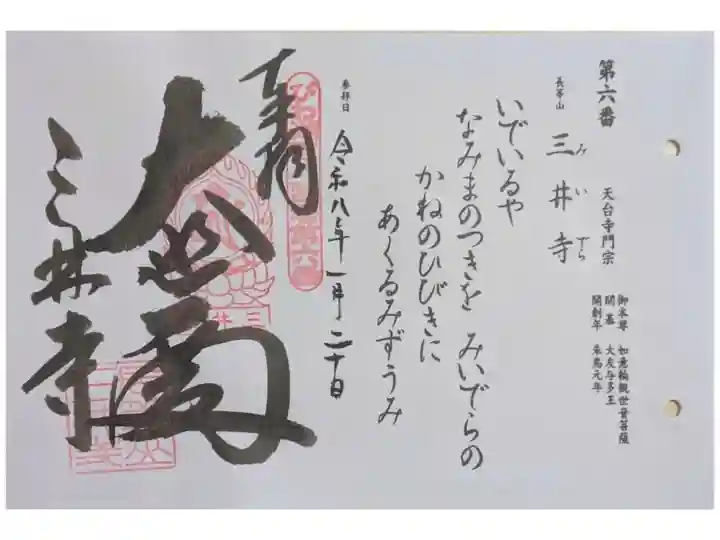 第六番
天台寺門宗
御本尊 如意輪観世音菩薩
開基 大友与多王
開創年 朱鳥元年
長等山
三井寺
みいでら
いでいるや
なみまのつきを みいでらの
かねのひびきに
あくるみずうみ
参拝日
令和八年一月二十日
奉拝
大悲閣
三井寺